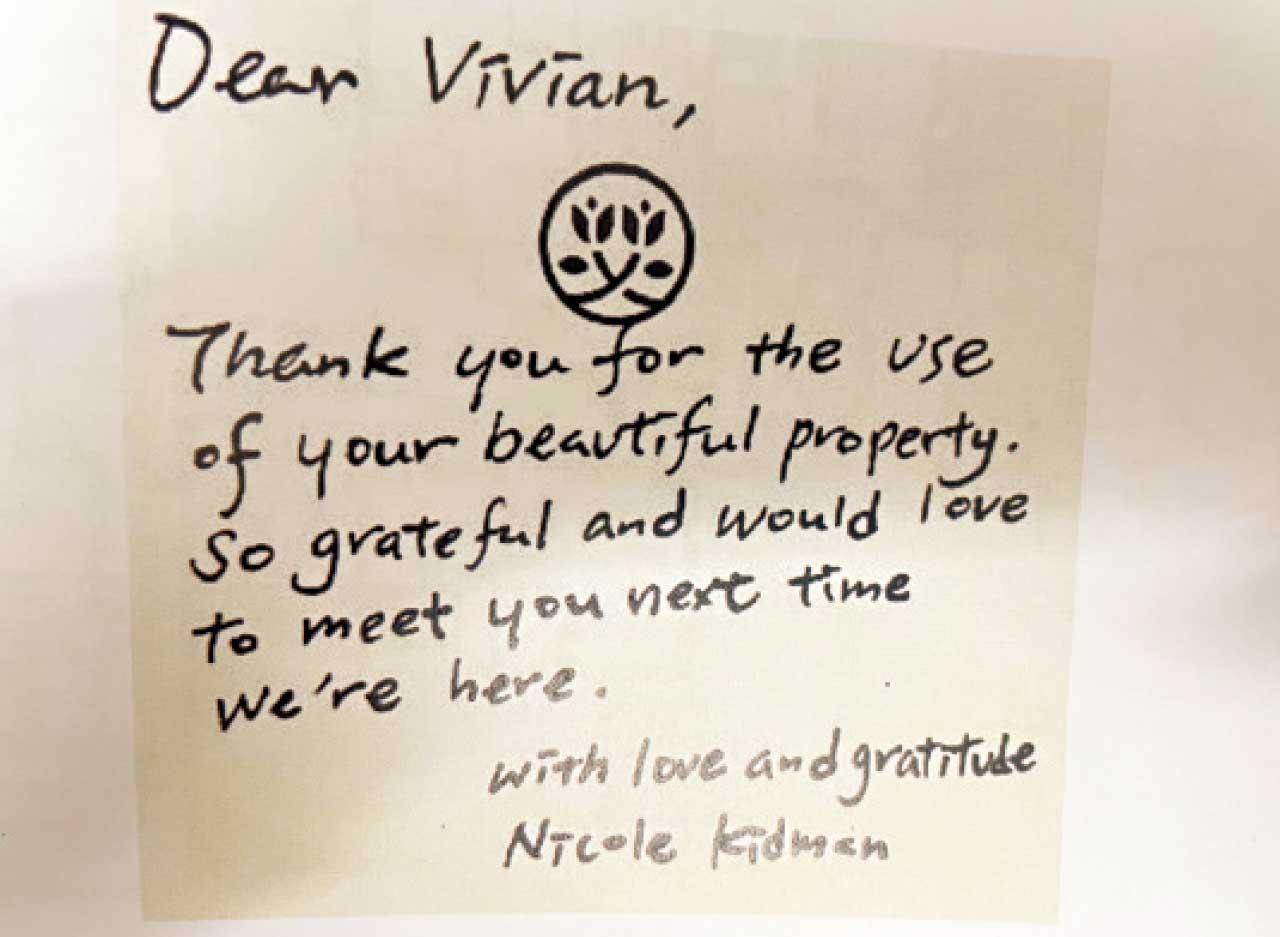 Dear Vivian,
Thank you for the use
of your beautiful property.
So grateful and would love
to meet you next time
we're here.
with love and gratitude
Nicole Kidman